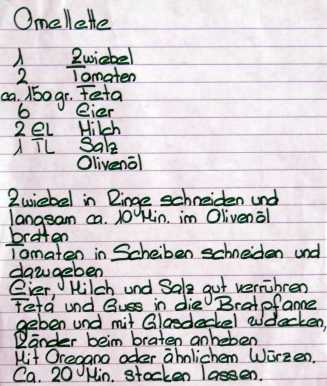 Omellette
1 Zwiebel
2 Tomaten
ca. 150 gr. Feta
6 Eier
2 EL Milch
1 TL Salz
Olivenöl
Zwiebel in Ringe schneiden und
langsam ca. 10 Min. im Olivenöl
braten
Tomaten in Scheiben schneiden und
dazugeben
Eier, Milch und Salz gut verrühren
Feta und Guss in die Bratpfanne
geben und mit Glasdeckel zudecken,
Ränder beim braten anheben
Mit Oregano oder ähnlichem Würzen.
Ca. 20 Min. stocken lassen.